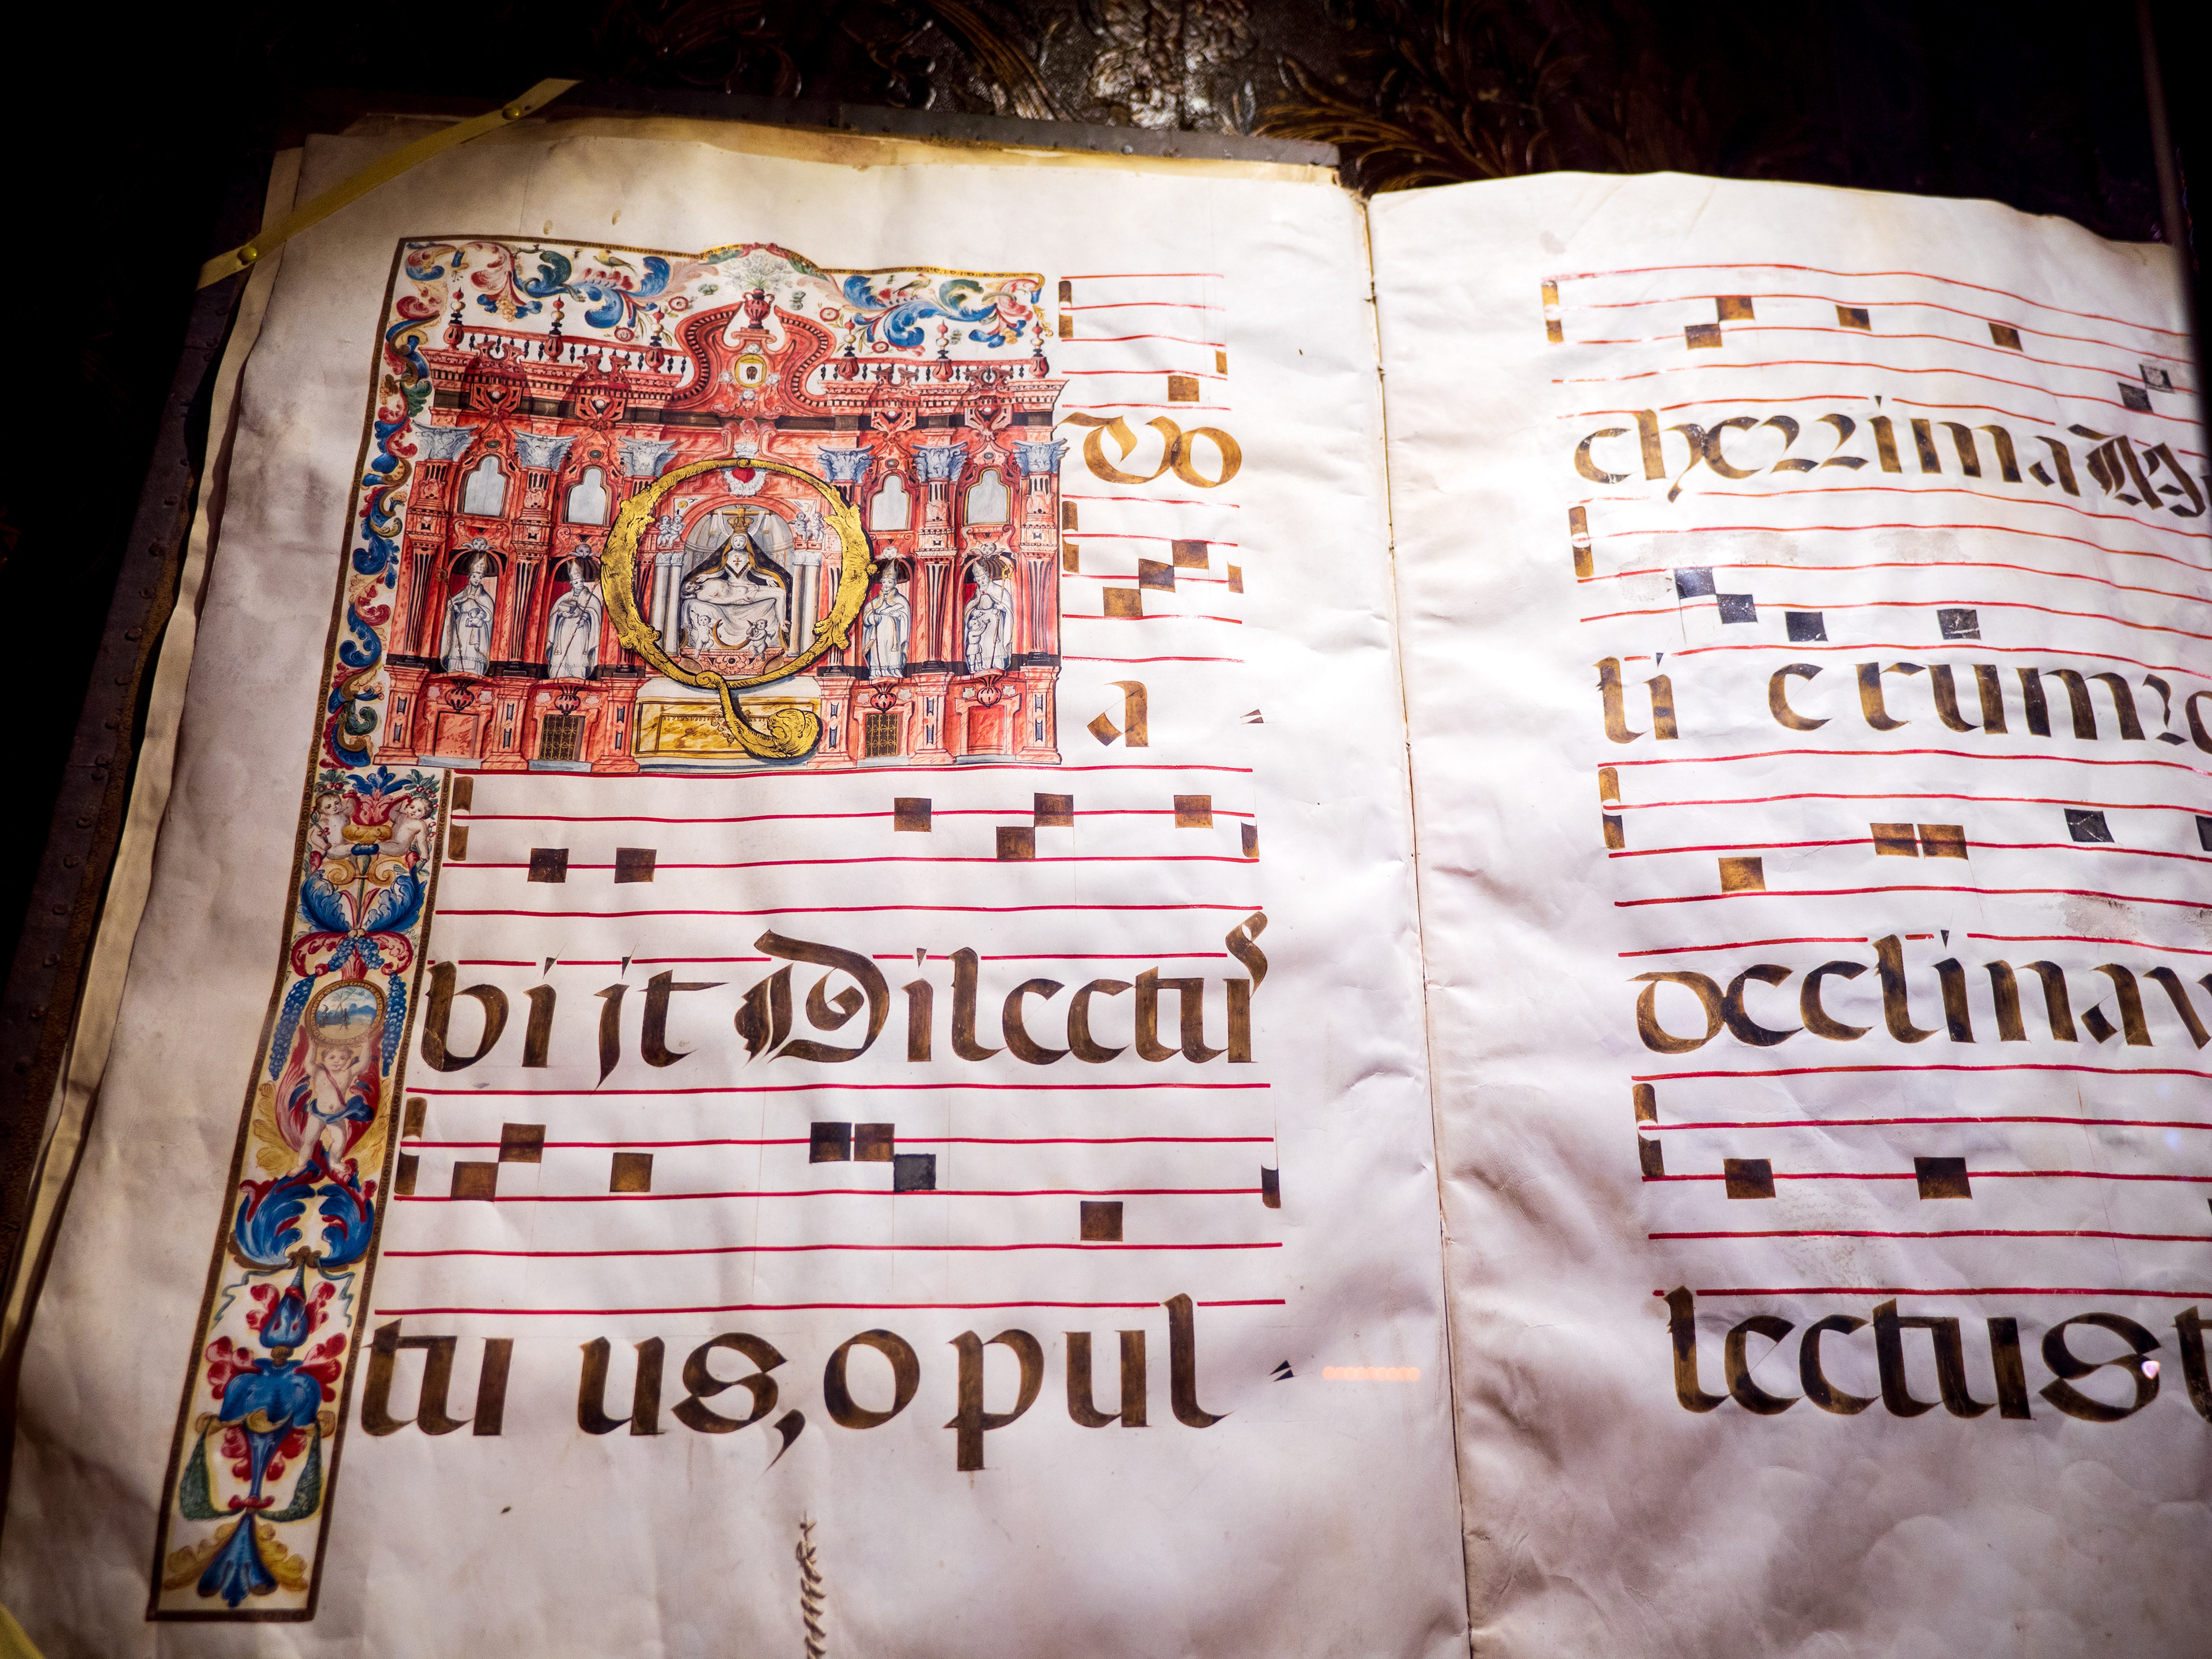 Quo
a
bijt Dilectus
tu us, o pul
cherrima M
ti erum?
declinav
lectus t